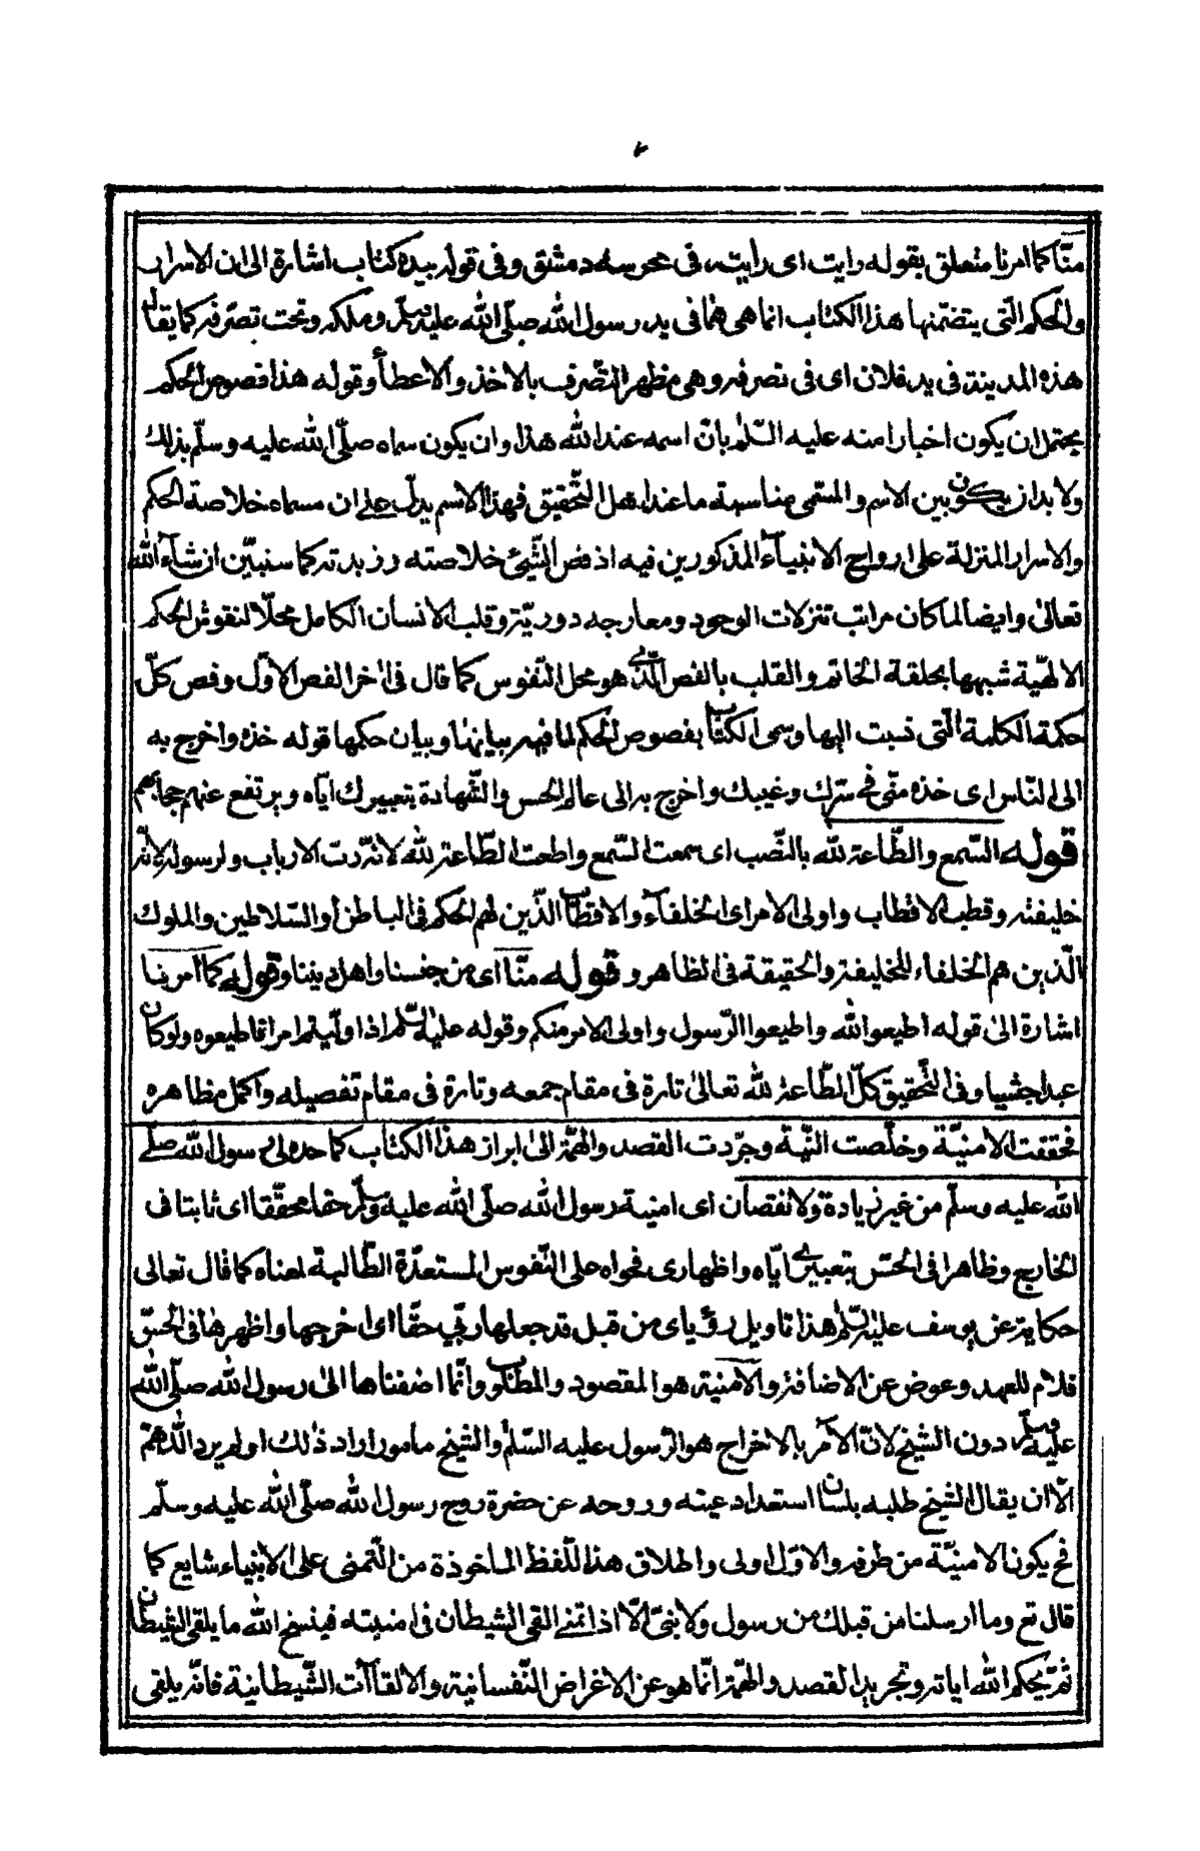 منّا كما امرنا متعلق بقوله رايت اى رايته فى محروسه دمشق وفى قوله بيده كتاب اشارة الى ان الاسرار
والحكم الّتى يتضمنها هذا الكتاب انما هى ممّا فى يد رسول الله صلّى الله عليه وسلّم وملكه وتحت تصرّفه كما يقال
هذه المدينة فى يد فلان اى فى تصرفه وهى مظهر التّصرف بالاخذ والاعطاء وقوله هذا فصوص الحكم
يحتمل ان يكون اخبارا منه عليه السّلم بانّ اسمه عند الله هذا وان يكون سماه صلّى الله عليه وسلّم بذلك
ولا بد ان يكون بين الاسم والمسّمى مناسبة ما عند اهل التّحقيق فهذا الاسم يدلّ على ان مسماه خلاصة الحكم
والاسرار المنزلة على ارواح الانبيآء المذكورين فيه اذ فص الشّيئ خلاصته وزبدته كما سنبيّن ان شآء الله
تعالى وايضا لما كان مراتب تنزلات الوجود ومعارجه دوريّة وقلب الانسان الكامل محلّا لنقوش الحكم
الالهيّة شبهها بحلقة الخاتم والقلب بالفص الّذى هو محل النّقوس كما قال فى اخر الفص الاوّل وفص كلّ
حكمة الكلمة الّتى نسبت اليها وسمى الكتاب بفصوص الحكم لما فيه بيانها وبيان حكمها قوله خذه واخرج به
الى النّاس اى خذه منّى فى سرّك وغيبك واخرج به الى عالم الحس والشّهادة بتعبيرك ايّاه ويرتفع عنهم حجابهم
قوله السّمع والطّاعة لله بالنّصب اى سمعت السّمع واطعت الطّاعة لله لانّه ربّ الارباب ولرسوله لانّه
خليفته وقطب الاقطاب واولى الامر اى الخلفآء والاقطاب الّذين لهم الحكم فى الباطن او السّلاطين والملوك
الّذين هم الخلفاء للخليفة والحقيقة فى الظاهر وقوله منّا اى من جنسنا واهل ديننا وقوله كما امرنا
اشارة الى قوله اطيعوا الله واطيعوا الرّسول واولى الامر منكم وقوله عليه السّلم اذا وليتم امرا فاطيعوه ولو كان
عبدا حبشيا وفى التّحقيق كلّ الطّاعة لله تعالى تارة فى مقام جمعه وتارة فى مقام تفصيله واكمل مظاهره
فحققت الامنيّة وخلّصت النيّة وجرّدت القصد والهمّة الى ابراز هذا الكتاب كما حده لى رسول الله صلى
الله عليه وسلّم من غير زيادة ولا نقصان اى امنية رسول الله صلّى الله عليه وسلّم حقا محقّقا اى ثابتا فى
الخارج وظاهرا فى الحسّ بتعبيرى ايّاه واظهارى فحواه على النّفوس المستعدّة الطّالبة لمعناه كما قال تعالى
حكاية عن يوسف عليه السّلم هذا تاويل رؤياى من قبل قد جعلها ربّي حقّا اى اخرجها واظهرها فى الحسّ
فلام للعهد وعوض عن الاضافة والامنية هو المقصود والمطلوب وانّما اضفناها الى رسول الله صلّى الله
عليه وسلّم دون الشيخ لانّ الآمر بالاخراج هو الرّسول عليه السّلم والشيخ مأمور اراد ذلك او لم يرد اللهم
الّا ان يقال الشيخ طلبه بلسان استعداد عينه وروحه عن حضرة روح رسول الله صلّى الله عليه وسلّم
فح يكون الامنيّة من طرفه والاوّل اولى واطلاق هذا اللّفظ الماخوذة من التّمنى على الانبياء شايع كما
قال تع وما ارسلنا من قبلك من رسول ولا نبىّ الّا اذا تمنى القى الشيطان فى امنيته فينسخ الله ما يلقى الشيطان
ثمّ يحكم الله اياته وتجريد القصد والهمّة انّما هو عن الاغراض النّفسانية والالقاآت الشّيطانية فانّه يلقى